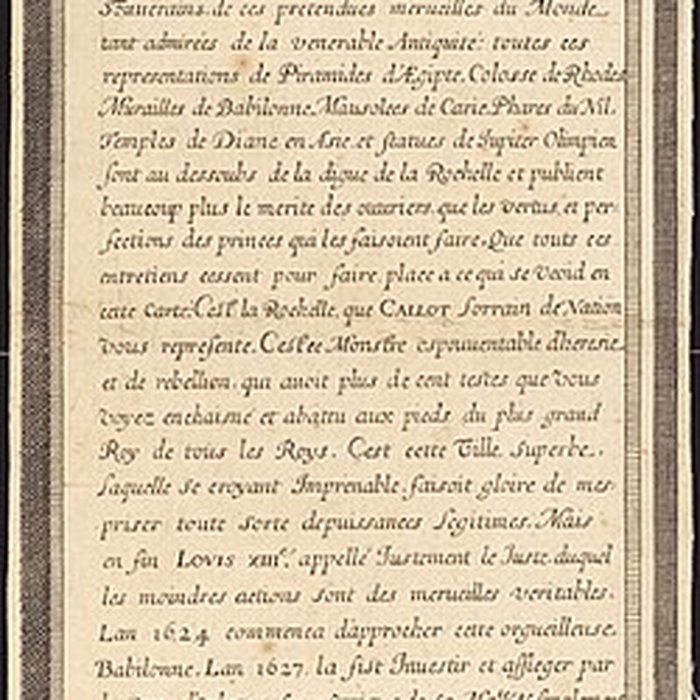 Souuerains de ces pretendues merueilles du Monde
tant admirées de la venerable Antiquité: toutes ces
representations de Piramides d'Ægipte, Colosse de Rhodes
Murailles de Babilonne, Mausolees de Carie, Phares du Nil,
Temples de Diane en Asie, et statues de Jupiter Olimpien
sont au dessoubs de la digue de la Rochelle et publient
beaucoup plus le merite des ouuriers que les vertus, et per-
fections des princes qui les faisoient faire. Que touts ces
entretiens cessent pour faire place a ce qui se void en
cette Carte: C'est la Rochelle, que CALLOT lorrain de Nation
vous represente. C'est ce Monstre espouuentable d'heresie
et de rebellion, qui auoit plus de cent testes que vous
voyez enchaisné et abattu aux pieds du plus grand
Roy de tous les Roys. C'est cette Ville superbe,
laquelle se croyant Imprenable, faisoit gloire de mes-
priser toute sorte de puissances legitimes. Mais
en fin LOVIS XIII.e, appellé Justement le Juste, duquel
les moindres actions sont des merueilles veritables.
Lan 1624 commenca d'approcher cette orgueilleuse
Babilonne. Lan 1627, la fist Inuestir et assieger par